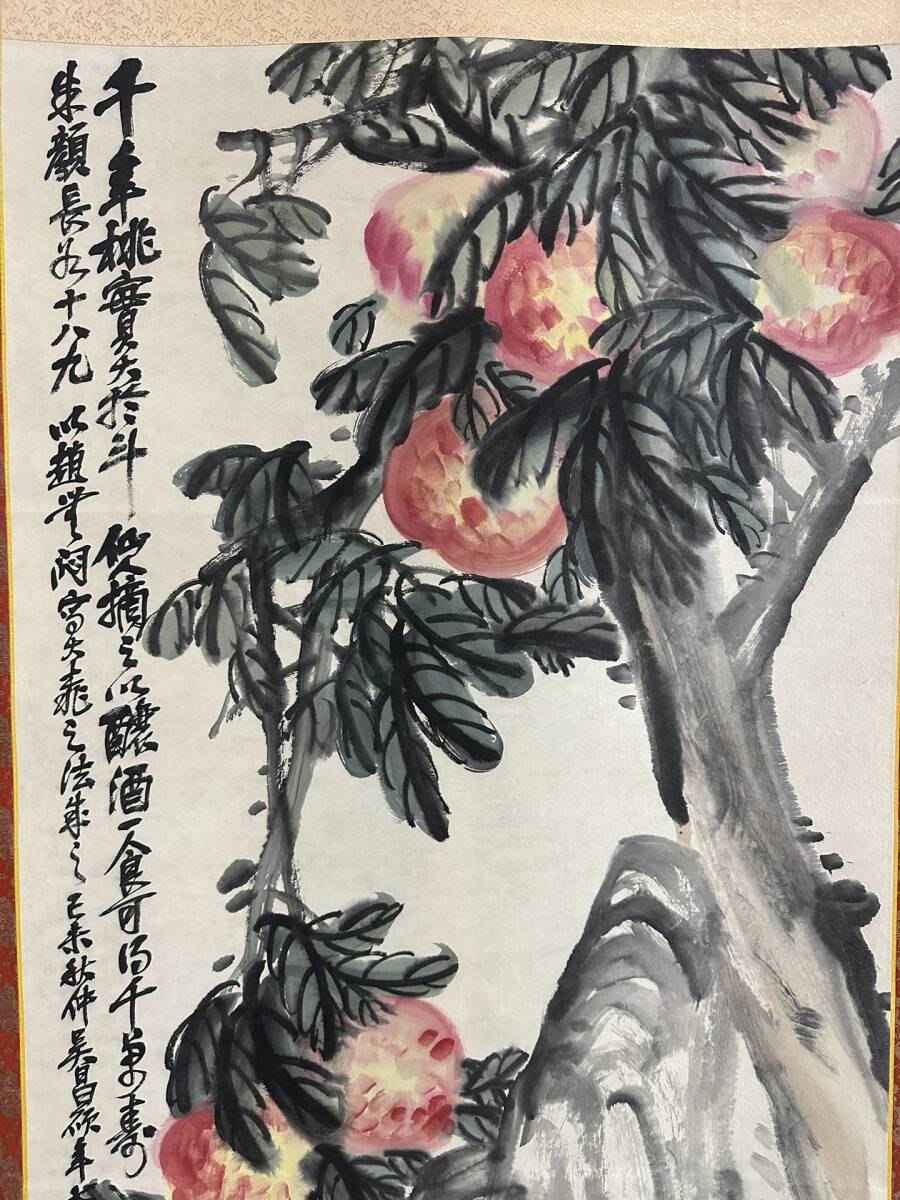 千年桃實大於斗仙人摘之以釀酒一食可得千萬壽
朱顏長如十八九以趙无悶寫大桃之法成之己未秋仲吳昌碩年